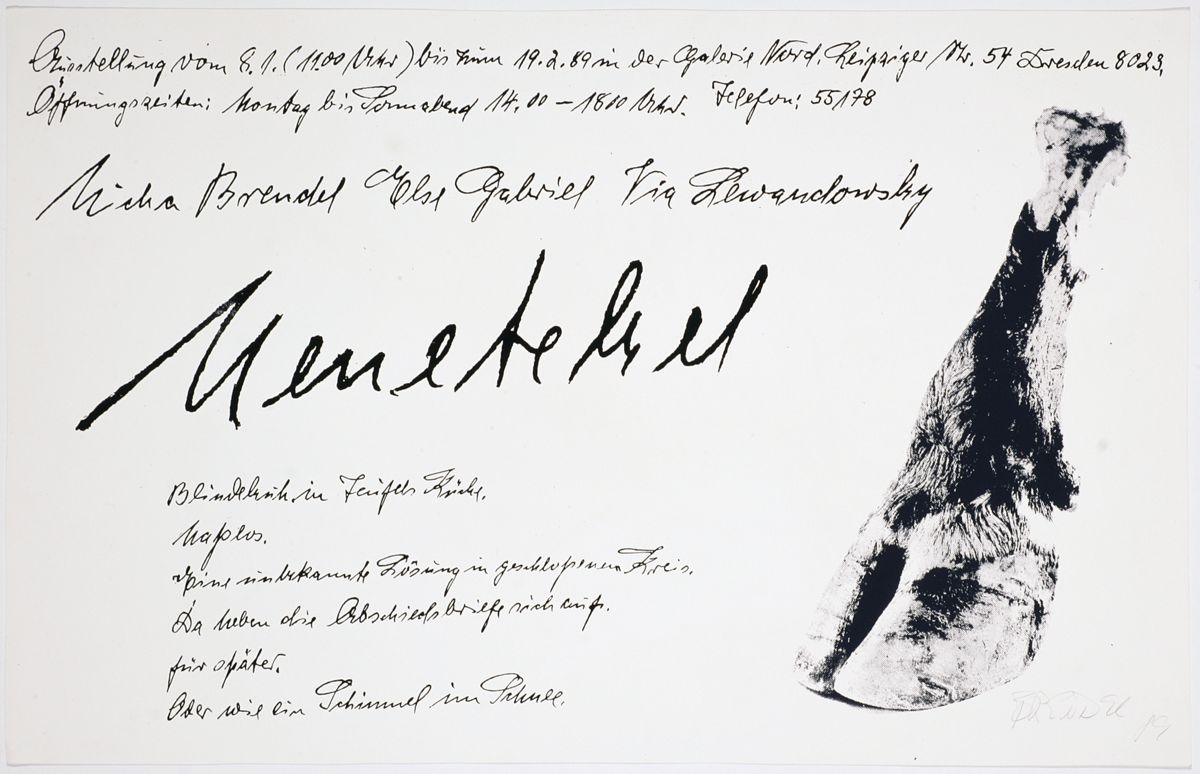 Ausstellung vom 8.1. (11.00 Uhr) bis zum 19.2.89 in der Galerie Nord. Leipziger Str. 54 Dresden 8023,
Öffnungszeiten: Montag bis Sonnabend 14.00 – 18.00 Uhr. Telefon: 55178
Micha Brendel Else Gabriel Via Lewandowsky
Menetekel
Blindekuh in Teufels Küche.
Maßlos.
Eine unbekannte Lösung in geschloßenem Kreis.
Da heben die Abschiedsbriefe sich auf.
für später.
Oder wie ein Schimmel im Schnee.
BRENDEL 89